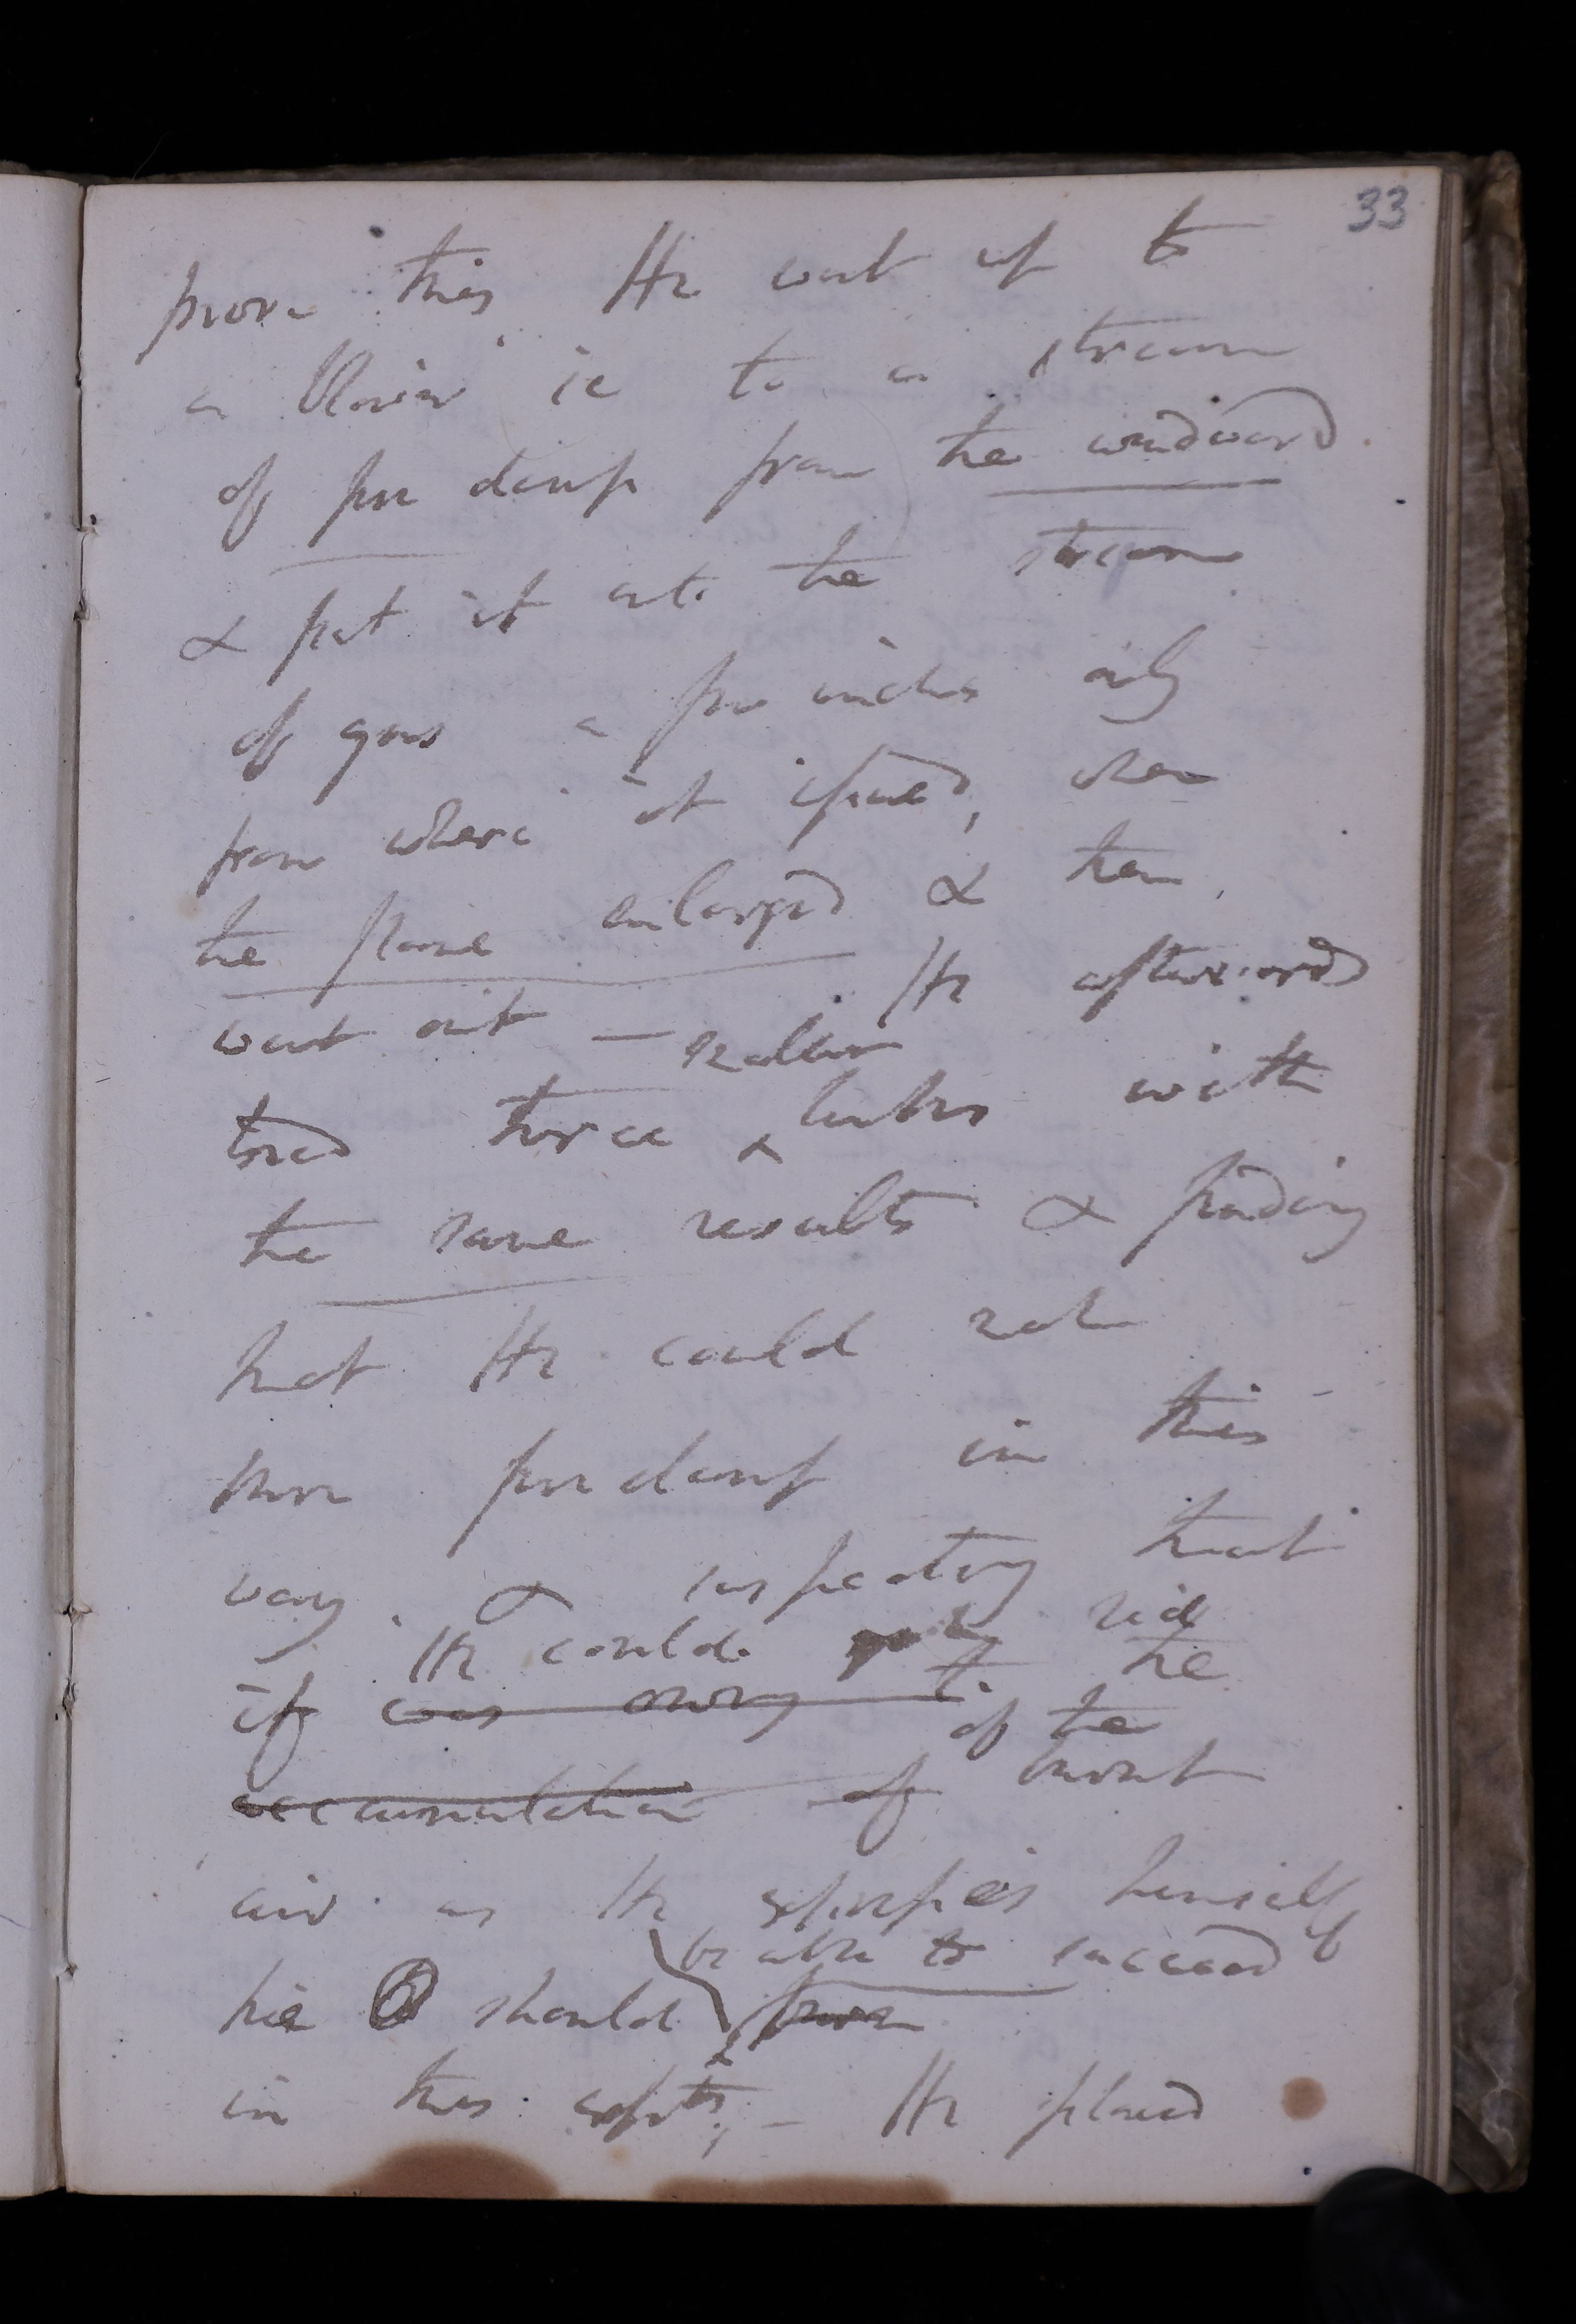 33
prove this He went up to
a blower ie to a stream
of fire damp from the windward
& put it into the stream
of gas a few inches only
from where it issued, when
the flame enlarged & then
went out — He afterwards
tried three smaller tubes with
the same results & finding
that He could not
burn fire damp in this
way & suspecting that
He could get rid
if was owing to the
of the
accumulation of burnt
air as He expresses himself
be able to succeed
he should
in this —; He placed